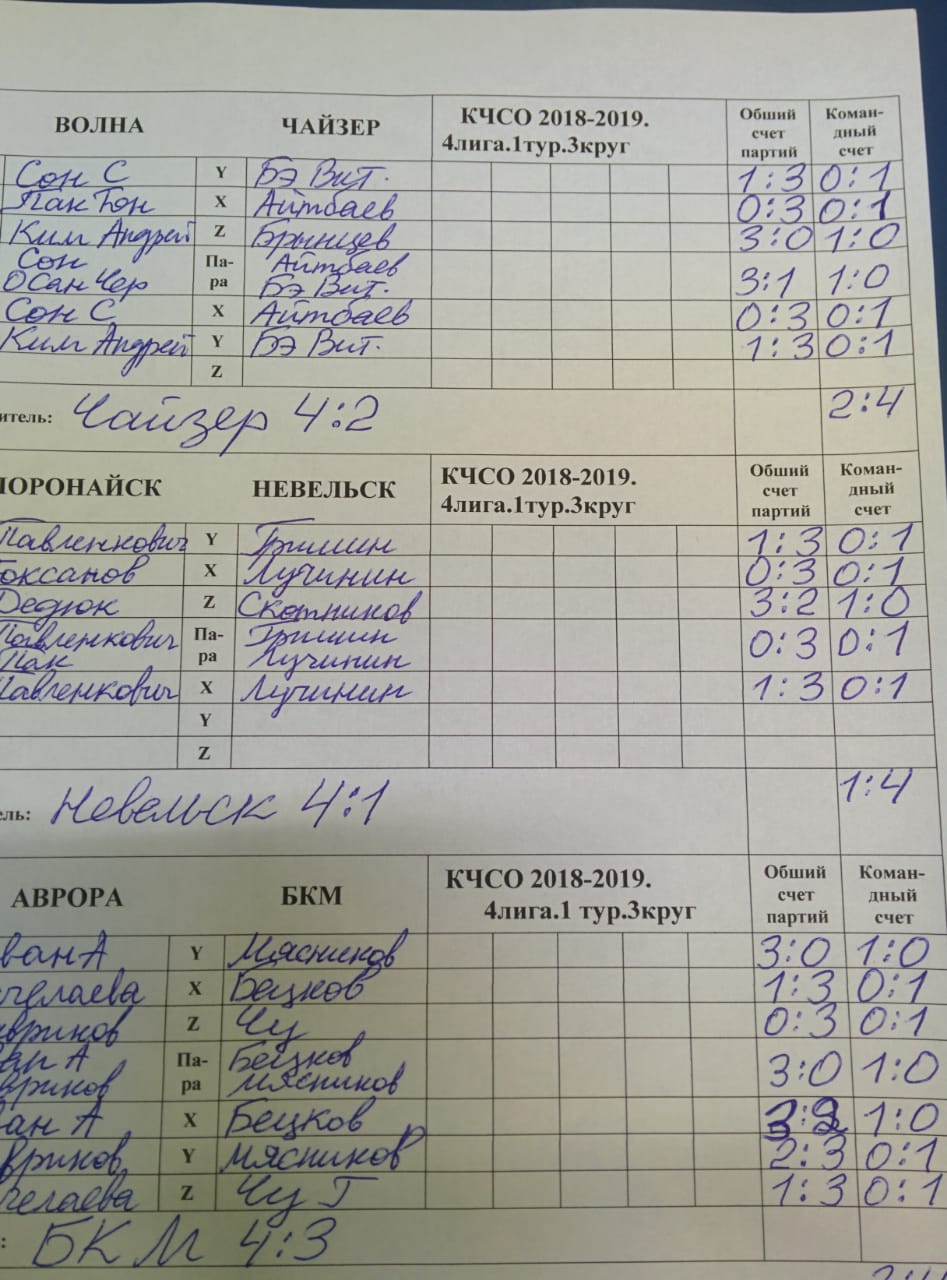 ВОЛНА ЧАЙЗЕР КЧСО 2018-2019. Обший Коман-
4лига.1тур.3круг счет дный
партий счет
Сон С Y Бэ Вит. 1:3 0:1
Пак Ён X Айтбаев 0:3 0:1
Ким Андрей Z Брынцев 3:0 1:0
Сон Па- Айтбаев 3:1 1:0
О Сан Чер ра Бэ Вит.
Сон С X Айтбаев 0:3 0:1
Ким Андрей Y Бэ Вит. 1:3 0:1
Z
итель: Чайзер 4:2 2:4
ПОРОНАЙСК НЕВЕЛЬСК КЧСО 2018-2019. Обший Коман-
4лига.1тур.3круг счет дный
партий счет
Павленкович Y Гришин 1:3 0:1
Токсанов X Лучинин 0:3 0:1
Дедюк Z Скотников 3:2 1:0
Павленкович Па- Гришин 0:3 0:1
Пак ра Лучинин
Павленкович X Лучинин 1:3 0:1
Y
Z
ель: Невельск 4:1 1:4
АВРОРА БКМ КЧСО 2018-2019. Обший Коман-
4лига.1 тур.3круг счет дный
партий счет
ван А Y Мясников 3:0 1:0
челаева X Бецков 1:3 0:1
авринов Z Чу 0:3 0:1
ван А Па- Бецков 3:0 1:0
вринов ра Мясников
ван А X Бецков 3:2 1:0
вринов Y Мясников 2:3 0:1
челаева Z Чу Г 1:3 0:1
: БКМ 4:3